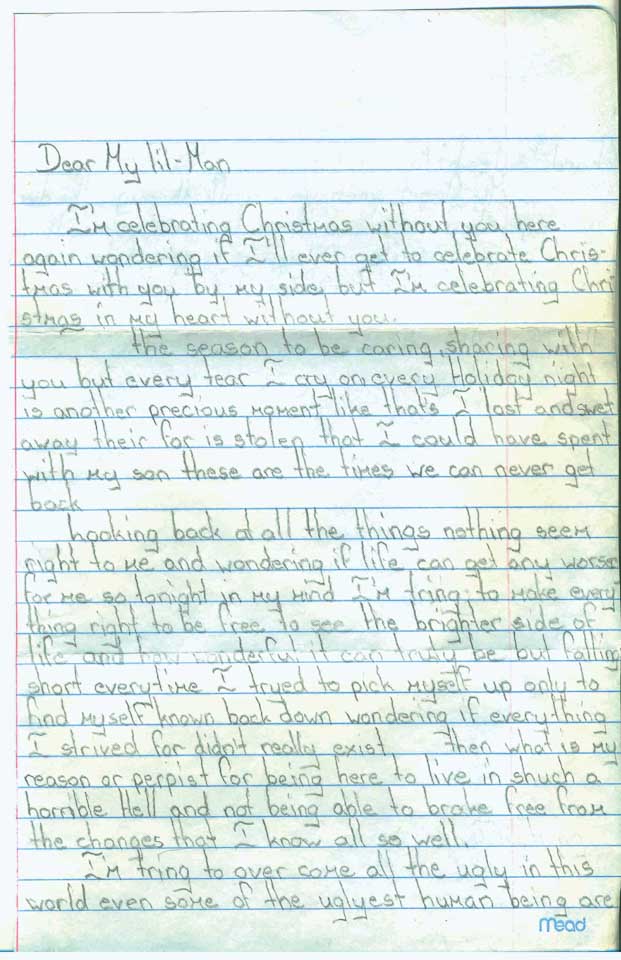 Dear My lil-Man
I'm celebrating Christmas without you here
again wondering if I'll ever get to celebrate Chris-
tmas with you by my side, but I'm celebrating Chri
stmas in my heart without you.
the season to be caring, sharing with
you but every tear I cry on every Holiday night
is another precious moment like that's I lost and swet
away their for is stolen that I could have spent
with my son these are the times we can never get
back
Looking back at all the things nothing seem
right to me and wondering if life can get any worse
for me so tonight in my mind I'm tring to make every
thing right to be free to see the brighter side of
life and how wonderful it can truly be but falling
short everytime I tryed to pick myself up only to
find myself known back down wondering if everything
I strived for didn't really exist then what is my
reason or perpist for being here to live in shuch a
horrible Hell and not being able to brake free from
the changes that I know all so well.
I'm tring to over come all the ugly in this
world even some of the uglyest human being are
Mead